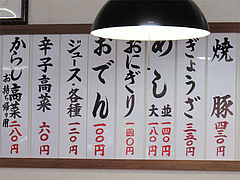 焼豚 四三〇
ぎょうざ 三五〇
めし 並 一四〇
大 一八〇
おにぎり 一四〇
おでん 一〇〇
ジュース・各種 一二〇
辛子高菜 六〇
からし高菜 お持ち帰り用 二八〇